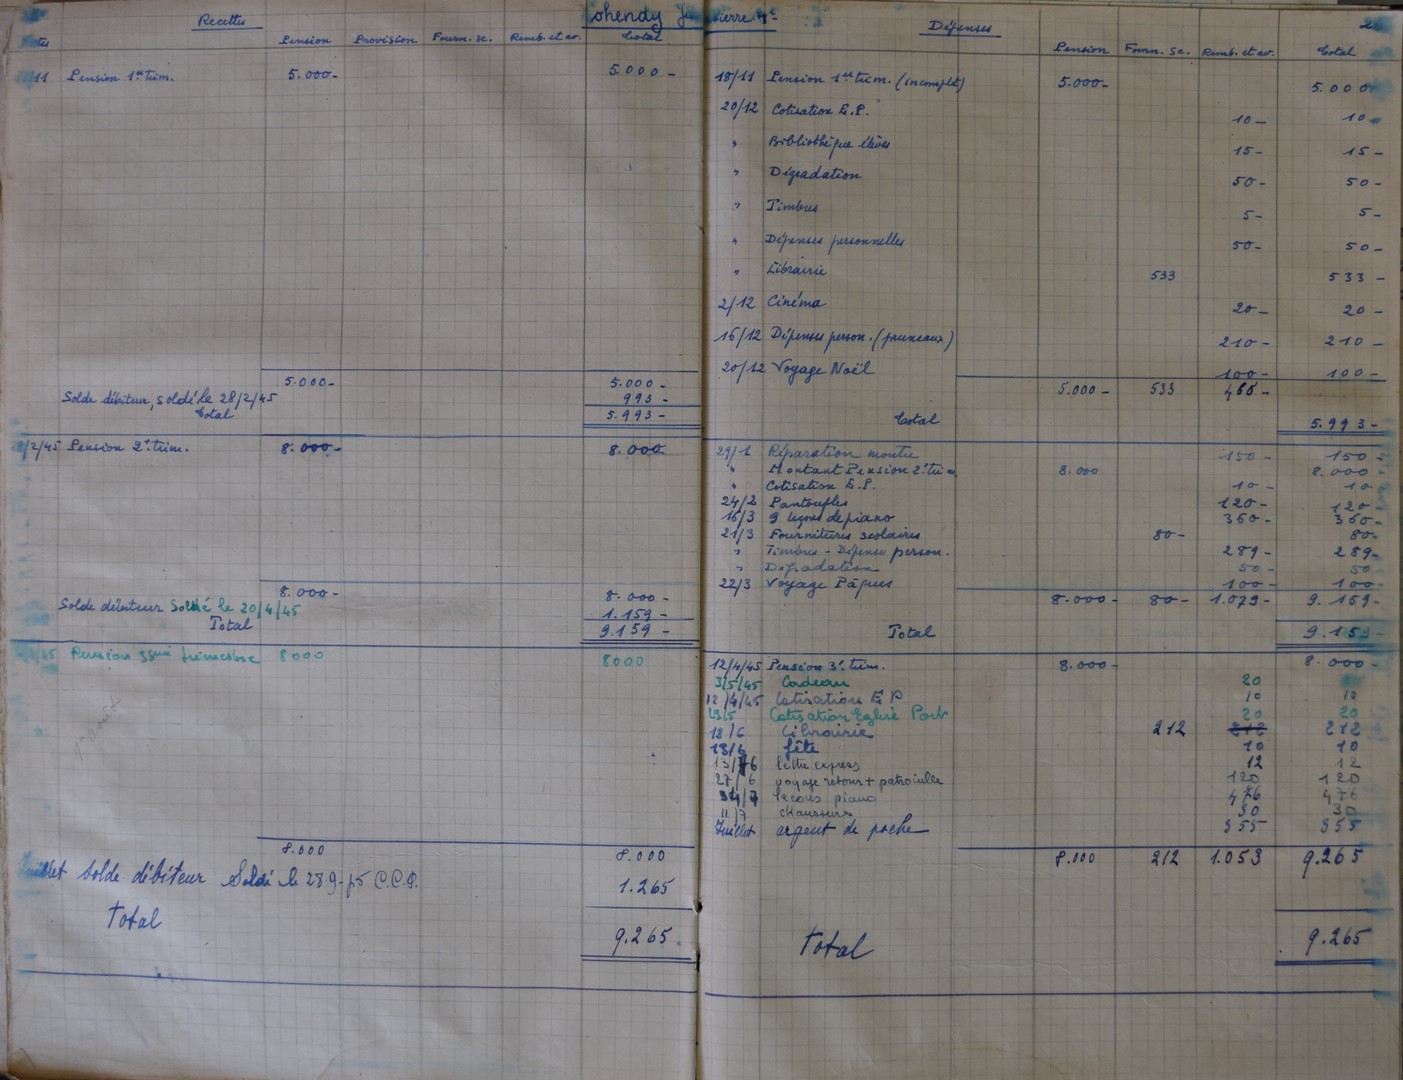 Recettes
Pension Provision Fourn. sc. Remb. et av. Total
11 Pension 1er trim. 5.000- 5.000-
5.000- 5.000-
Solde débiteur, soldé le 28/2/45 993-
Total 5.993-
/2/45 Pension 2e trim. 8.000- 8.000
8.000- 8.000-
Solde débiteur Soldé le 20/4/45 1.159-
Total 9.159-
Pension 3ème trimestre 8000 8000
8.000 8.000
Juillet Solde débiteur Soldé le 28.9-45 C.C.P. 1.265
Total 9.265.
ohendy
ierre
Dépenses
Pension Fourn. sc. Remb. et av. Total
18/11 Pension 1er trim. (incomplet) 5.000- 5.000
20/12 Cotisation E.P. 10- 10-
" Bibliothèque élèves 15- 15-
" Dégradation 50- 50-
" Timbres 5- 5-
" Dépenses personnelles 50- 50-
" Librairie 533 533-
2/12 Cinéma 20- 20-
16/12 Dépenses person. (pruneaux) 210- 210-
20/12 Voyage Noël 100- 100-
5.000- 533 460-
Total 5.993-
29/1 Réparation montre 150- 150-
" Montant Pension 2e trim. 8.000 8.000-
" Cotisation E.P. 10- 10-
24/2 Pantoufles 120- 120-
16/3 9 leçons de piano 360- 360-
21/3 Fournitures scolaires 80- 80-
" Timbres - Dépense person. 289- 289-
" Dégradation 50- 50
22/3 Voyage Pâques 100- 100-
8.000- 80- 1.079- 9.159-
Total 9.159-
12/4/45 Pension 3e trim. 8.000- 8.000-
3/5/45 Cadeau 20
12/4/45 Cotisations E P 10 10
Cotisation Eglise Port 20 20
18/6 Librairie 212 212 212
13/6 fête 10 10
lettre express 12 12
27/6 voyage retour + patrouille 120 120
leçons piano 476 476
11/7 chaussures 30 30
Juillet argent de poche 355 355
8.000 212 1.053 9.265
Total 9.265